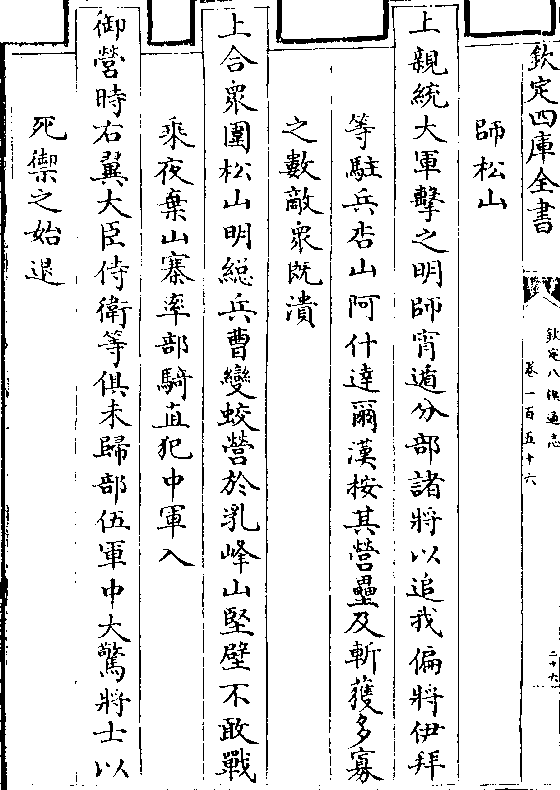 欽定四庫全書
欽定八旗通志
卷一百五十六
二十六
師松山
上親統大軍擊之明師宵遁分部諸將以追我偏將伊拜
等駐兵杏山阿什達爾漢按其營壘及斬獲多寡
之數敵衆既潰
上合衆圍松山明總兵曹變蛟營於乳峰山堅壁不敢戰
乘夜棄山寨率部騎直犯中軍入
御營時右翼大臣侍衛等俱未歸部伍軍中大驚將士以
死禦之始退